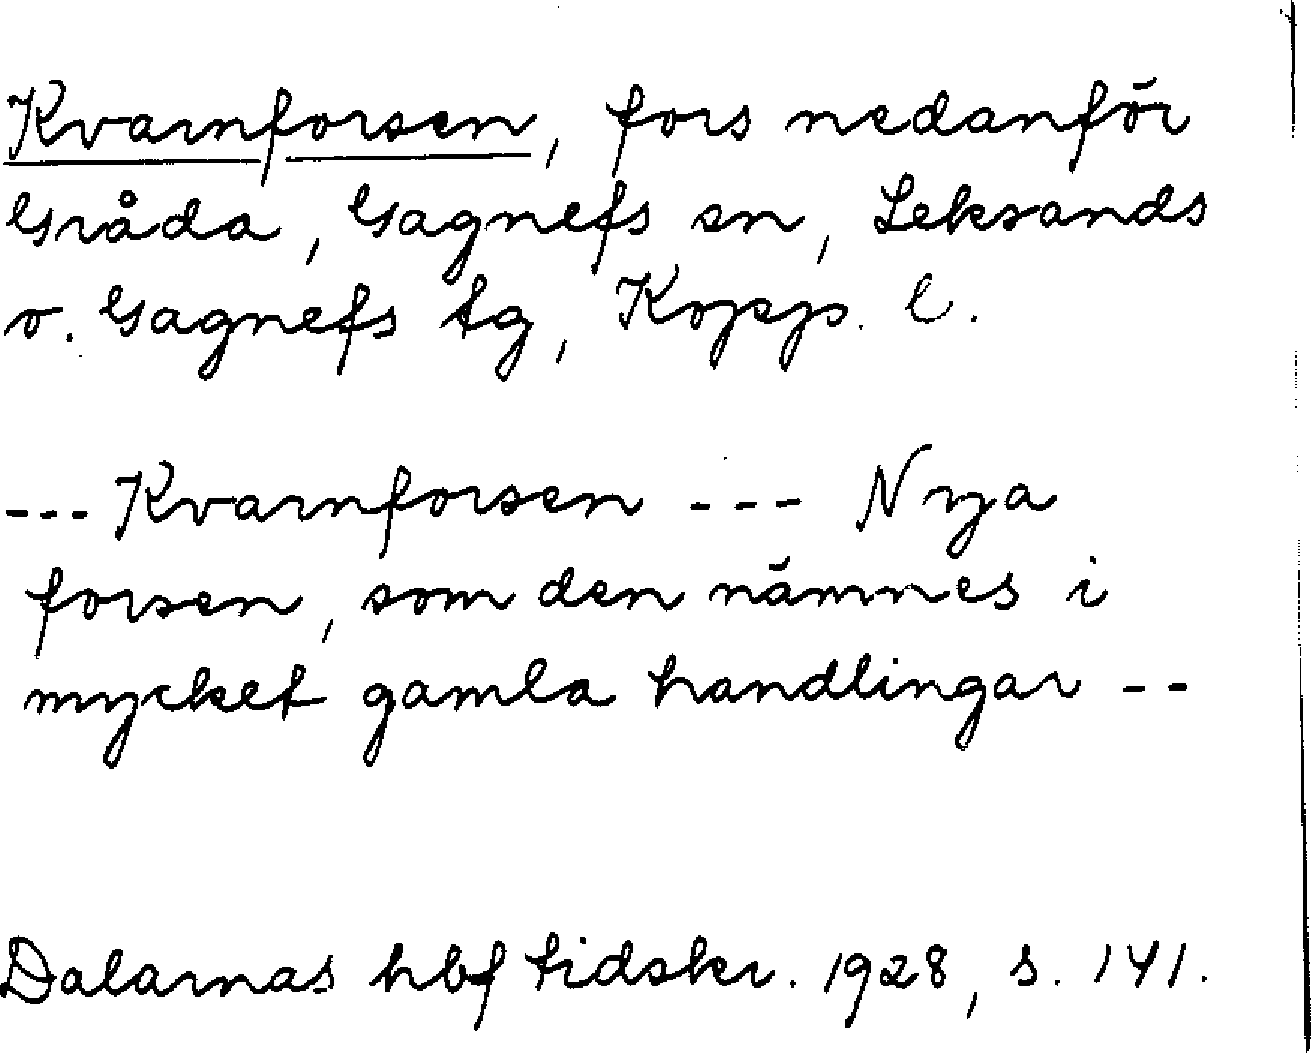 Kvarnforsen, fors nedanför
Gråda, Gagnefs sn, Leksands
o. Gagnefs tg, Kopp. l.
--- Kvarnforsen --- Nya
forsen, som den nämnes i
mycket gamla handlingar --
Dalarnas hbf tidskr. 1928, s. 141.